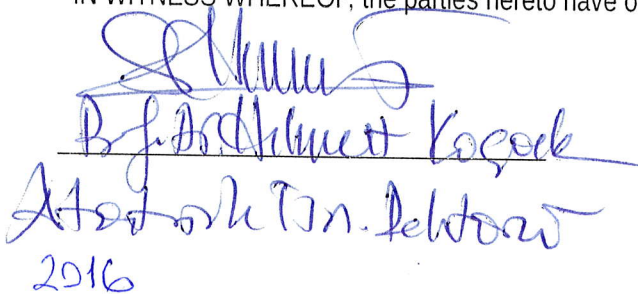 IN WITNESS WHEREOF, the parties hereto have o
Prof. Dr. Hikmet Koçak
Atatürk Ün. Rektörü
2016